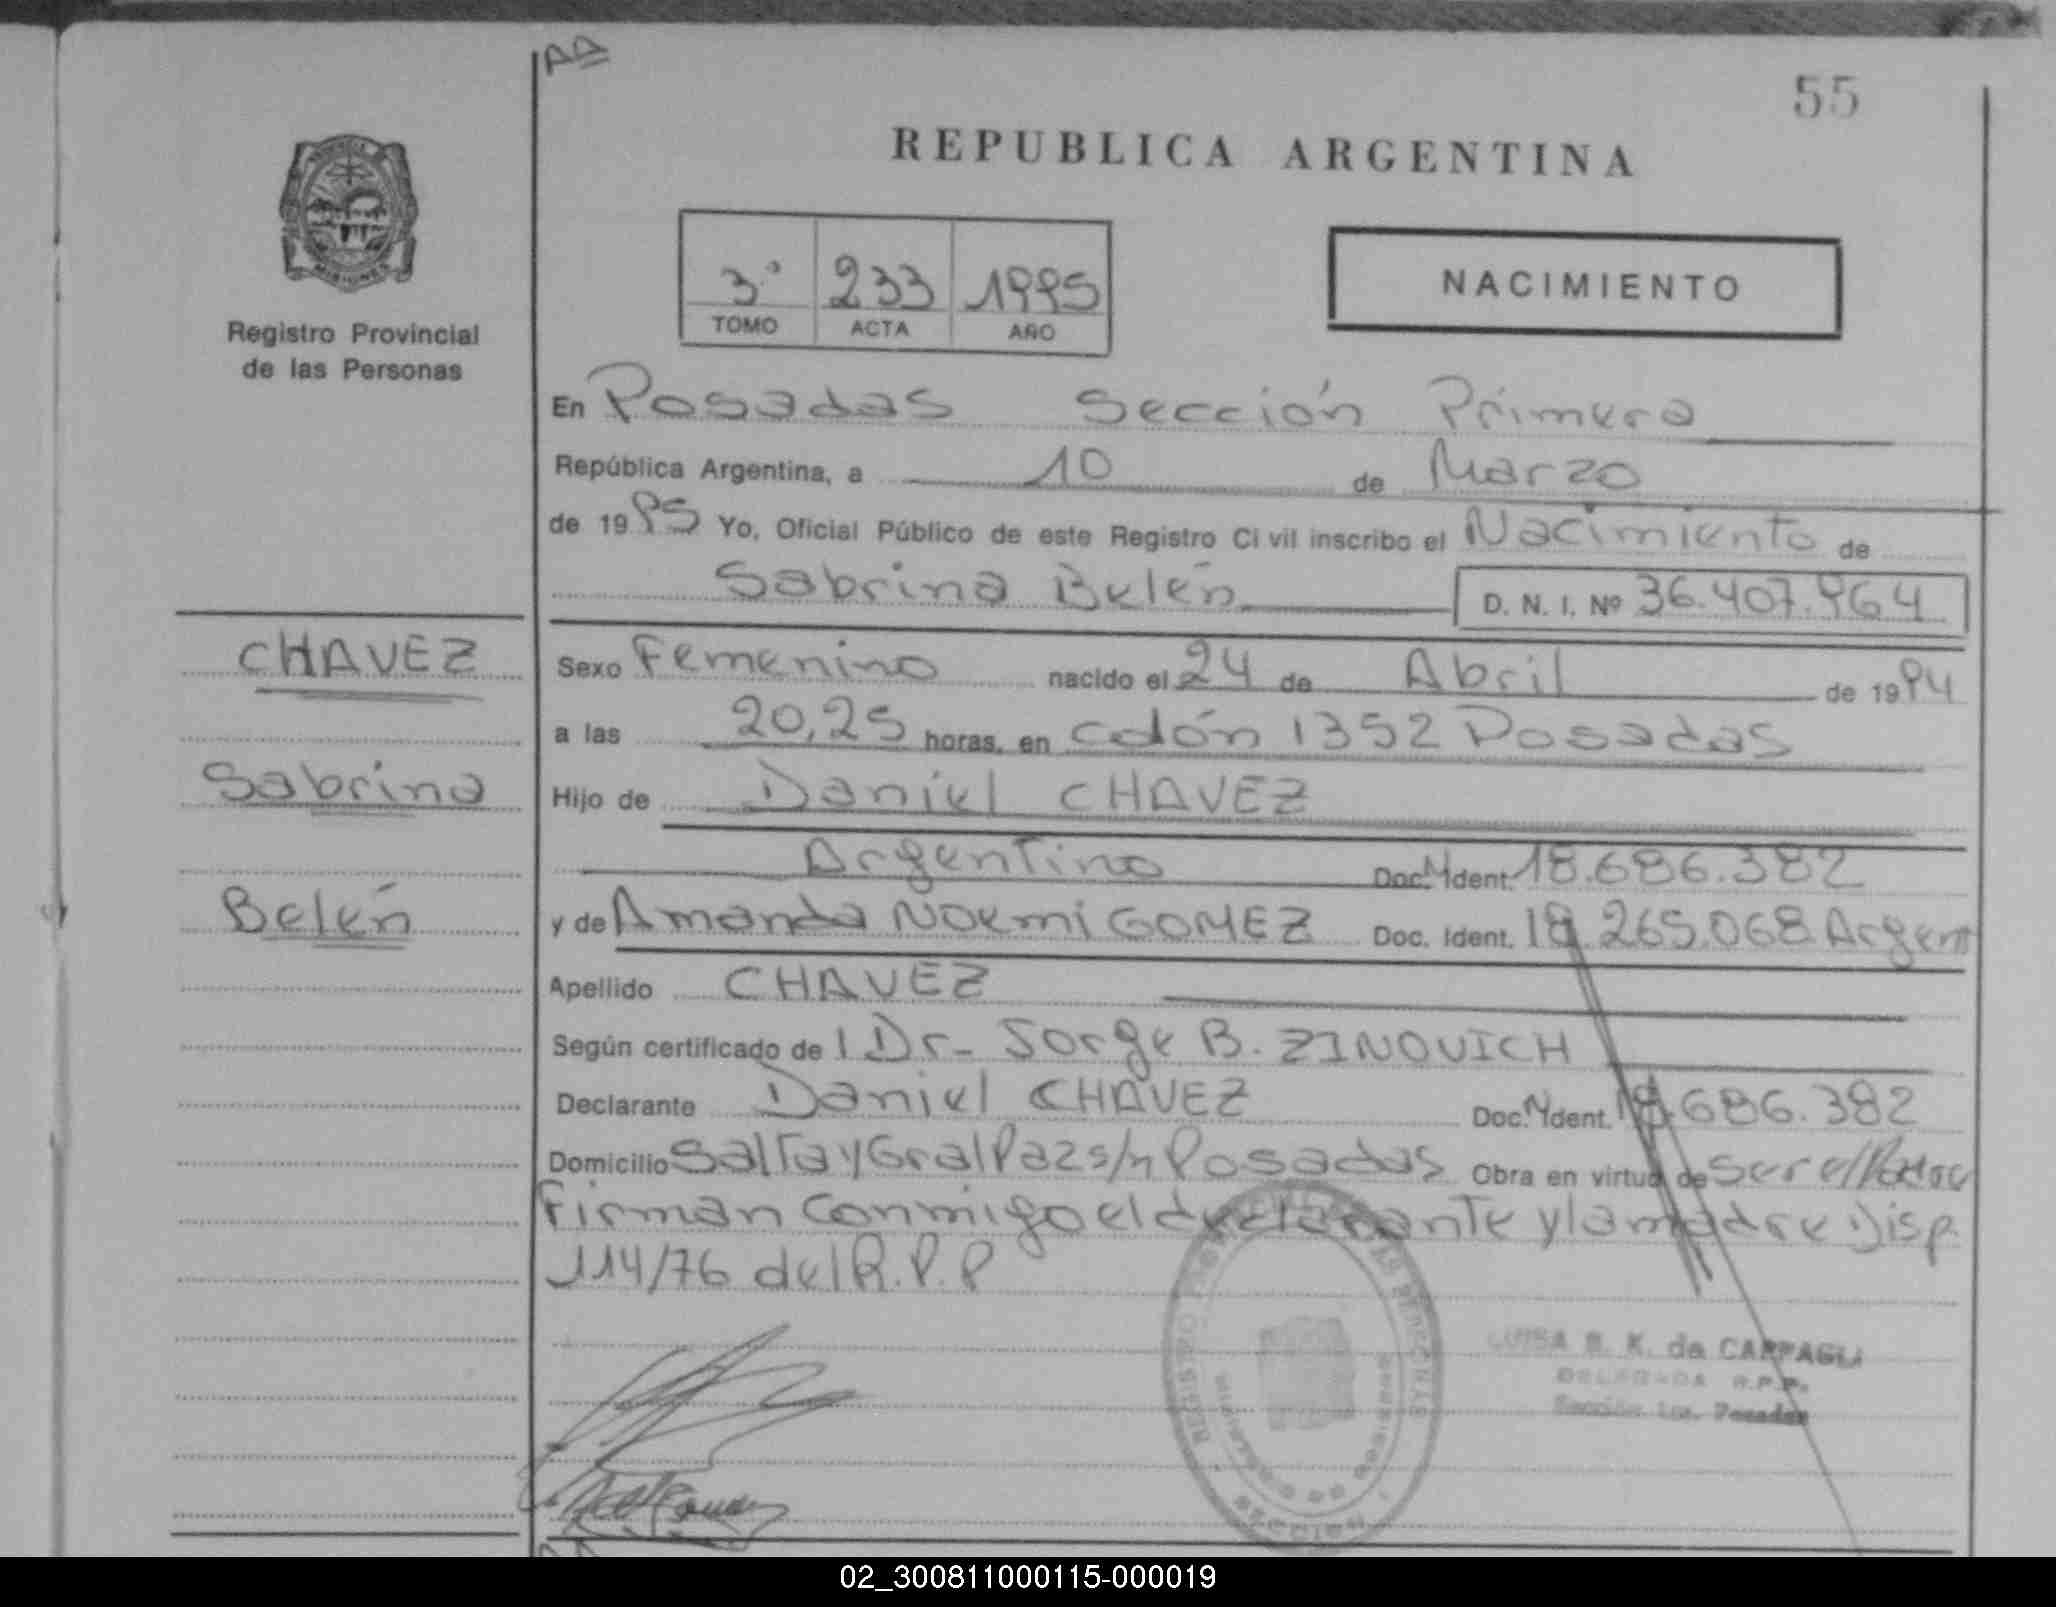 AA
55
REPUBLICA ARGENTINA
MISIONES
Registro Provincial
de las Personas
3° 233 1995
TOMO ACTA AÑO
NACIMIENTO
En Posadas Sección Primera
República Argentina, a 10 de Marzo
de 1995 Yo, Oficial Público de este Registro Civil inscribo el Nacimiento de
Sabrina Belén D. N. I. Nº 36.407.964
CHAVEZ
Sabrina
Belén
Sexo Femenino nacido el 24 de Abril de 1994
a las 20,25 horas, en Colón 1352 Posadas
Hijo de Daniel CHAVEZ
Argentino Doc. Ident. 18.686.382
y de Amanda Noemi GOMEZ Doc. Ident. 18.265.068 Argent
Apellido CHAVEZ
Según certificado de l Dr- Jorge B. ZINOVICH
Declarante Daniel CHAVEZ Doc. Ident. 18.686.382
Domicilio Salta y Gral Paz s/n Posadas Obra en virtud de ser el Padre
Firman conmigo el declarante y la madre Disp.
114/76 del R.P.P
LUISA B. K. de CAPPAGLI
DELEGADA R.P.P.
Sección 1ra. Posadas
02_300811000115-000019